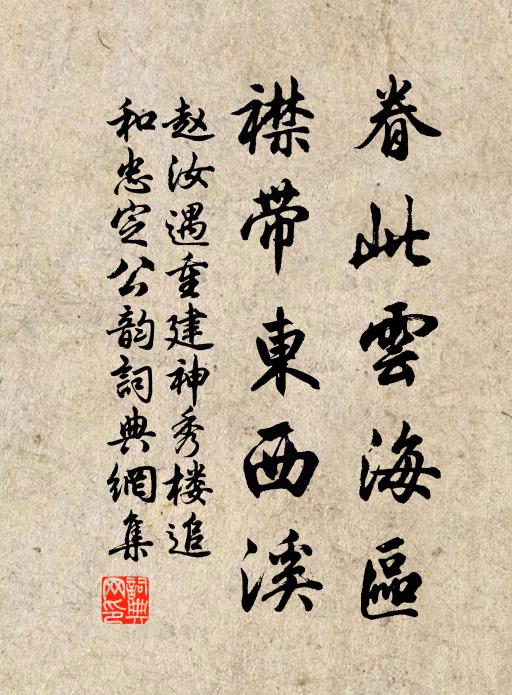 眷此雲海區
襟帶東西溪
赵汝遇重建神秀楼追
和忠定公韵詞典網集
詞典